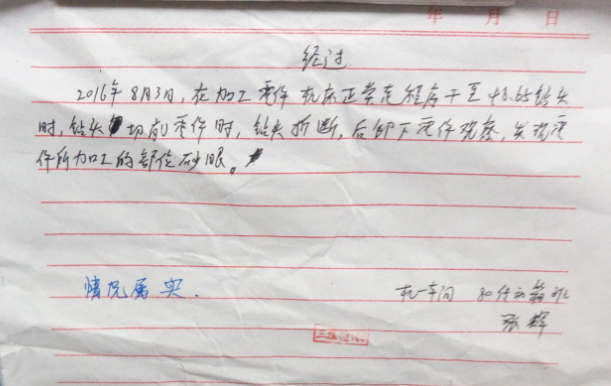 年 月 日
经过
2016年8月3日,在加工零件机床正常走程序干至 钻头
时,钻头切削零件时,钻头折断,后卸下零件观察,发现零
件所加工的部位砂眼。
情况属实.
机一车间
张辉